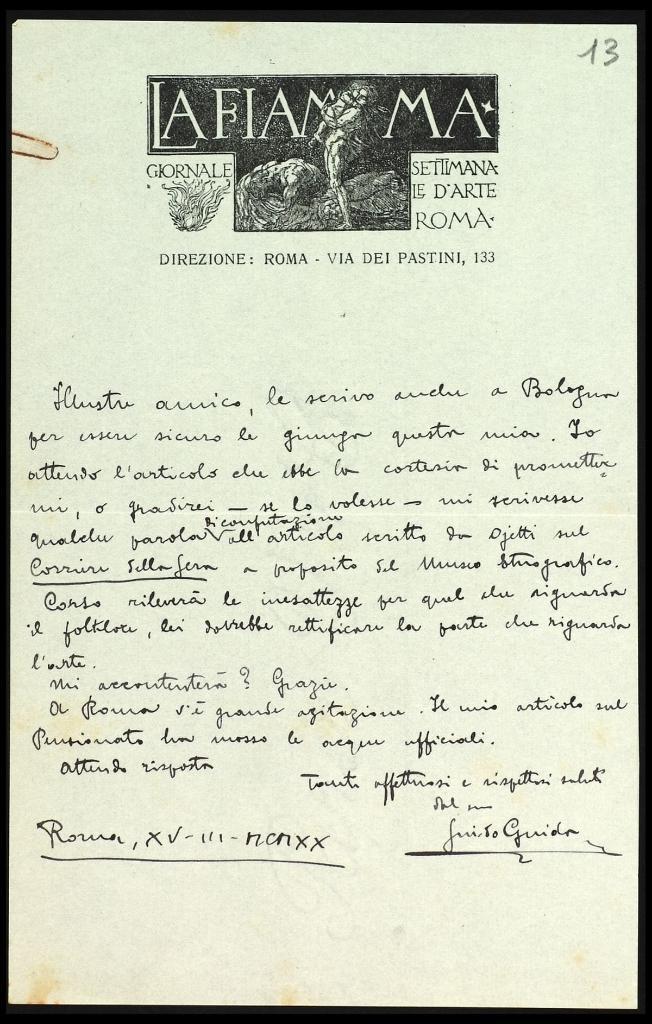 13
LA FIAMMA
GIORNALE SETTIMANA-
LE D'ARTE
ROMA
DIREZIONE: ROMA - VIA DEI PASTINI, 133
Illustre amico, le scrivo anche a Bologna
per essere sicuro le giunga questa mia. Io
attendo l'articolo che ebbe la cortesia di promettere
mi, o gradirei — se lo volesse — mi scrivesse
di confutazione
qualche parola all'articolo scritto da Ojetti sul
Corriere della Sera a proposito del Museo Etnografico.
Corso rileverà le inesattezze per quel che riguarda
il folklore, lei dovrebbe rettificare la parte che riguarda
l'arte.
Mi accontenterà? Grazie.
A Roma v'è grande agitazione. Il mio articolo sul
Pensionato ha mosso le acque ufficiali.
Attendo risposta
Tanti affettuosi e rispettosi saluti
dal suo
Guido Guida
Roma, XV-III-MCMXX